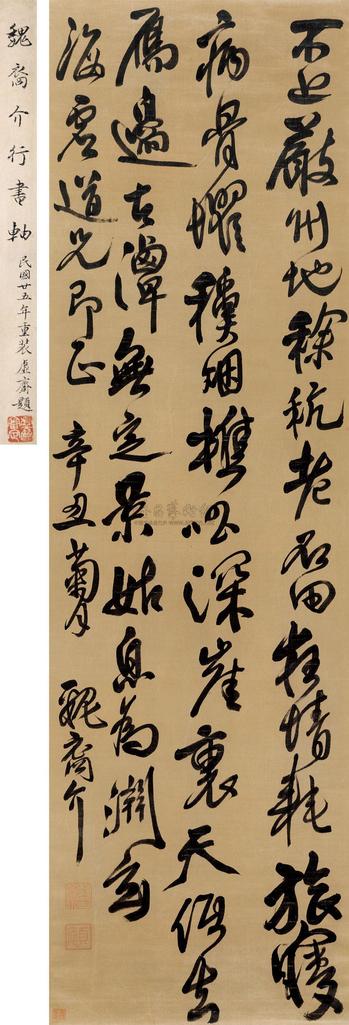 不止嚴州地秔老石田情耗旅
病骨烟樵深崖裏天低去
雁邊古潭無定景姑息為淵玄
海虛道兄即正 辛丑菊月 魏裔介
魏裔介行書軸 民國廿五年重裝虛齋題